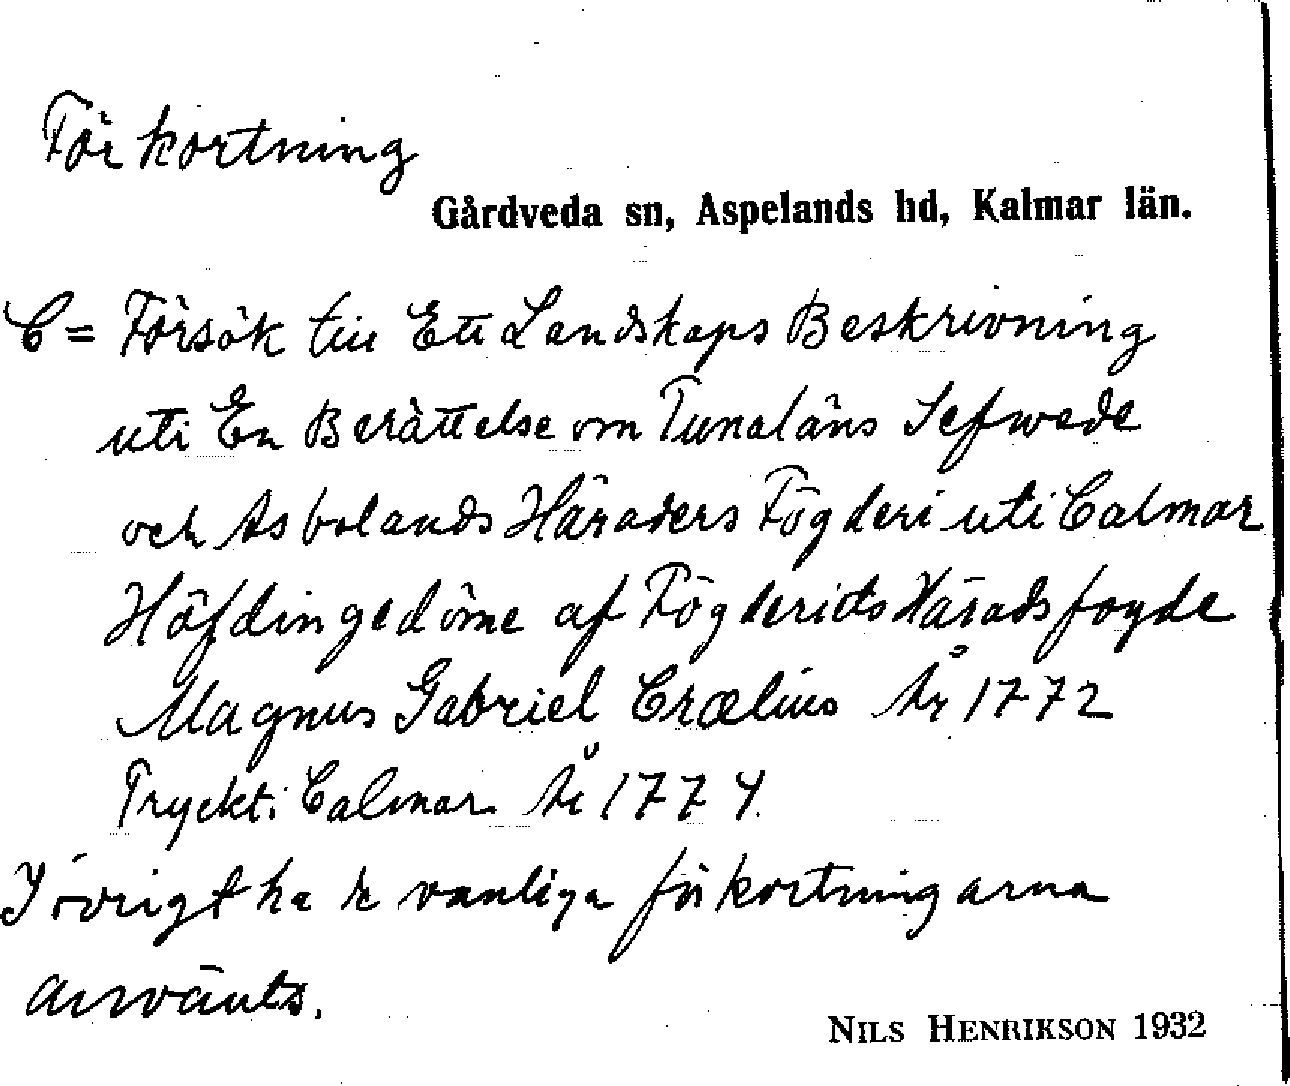 Förkortning
Gårdveda sn, Aspelands hd, Kalmar län.
C = Försök till Ett Landskaps Beskrivning
uti En Berättelse om Tunaläns Sefwede
och Asbolands Häraders Fögderi uti Calmar
Höfdingedöme af Fögderiets Häradsfogde
Magnus Gabriel Crælius År 1772
Tryckt i Calmar År 1774.
I övrigt ha de vanliga förkortningarna
använts.
NILS HENRIKSON 1932